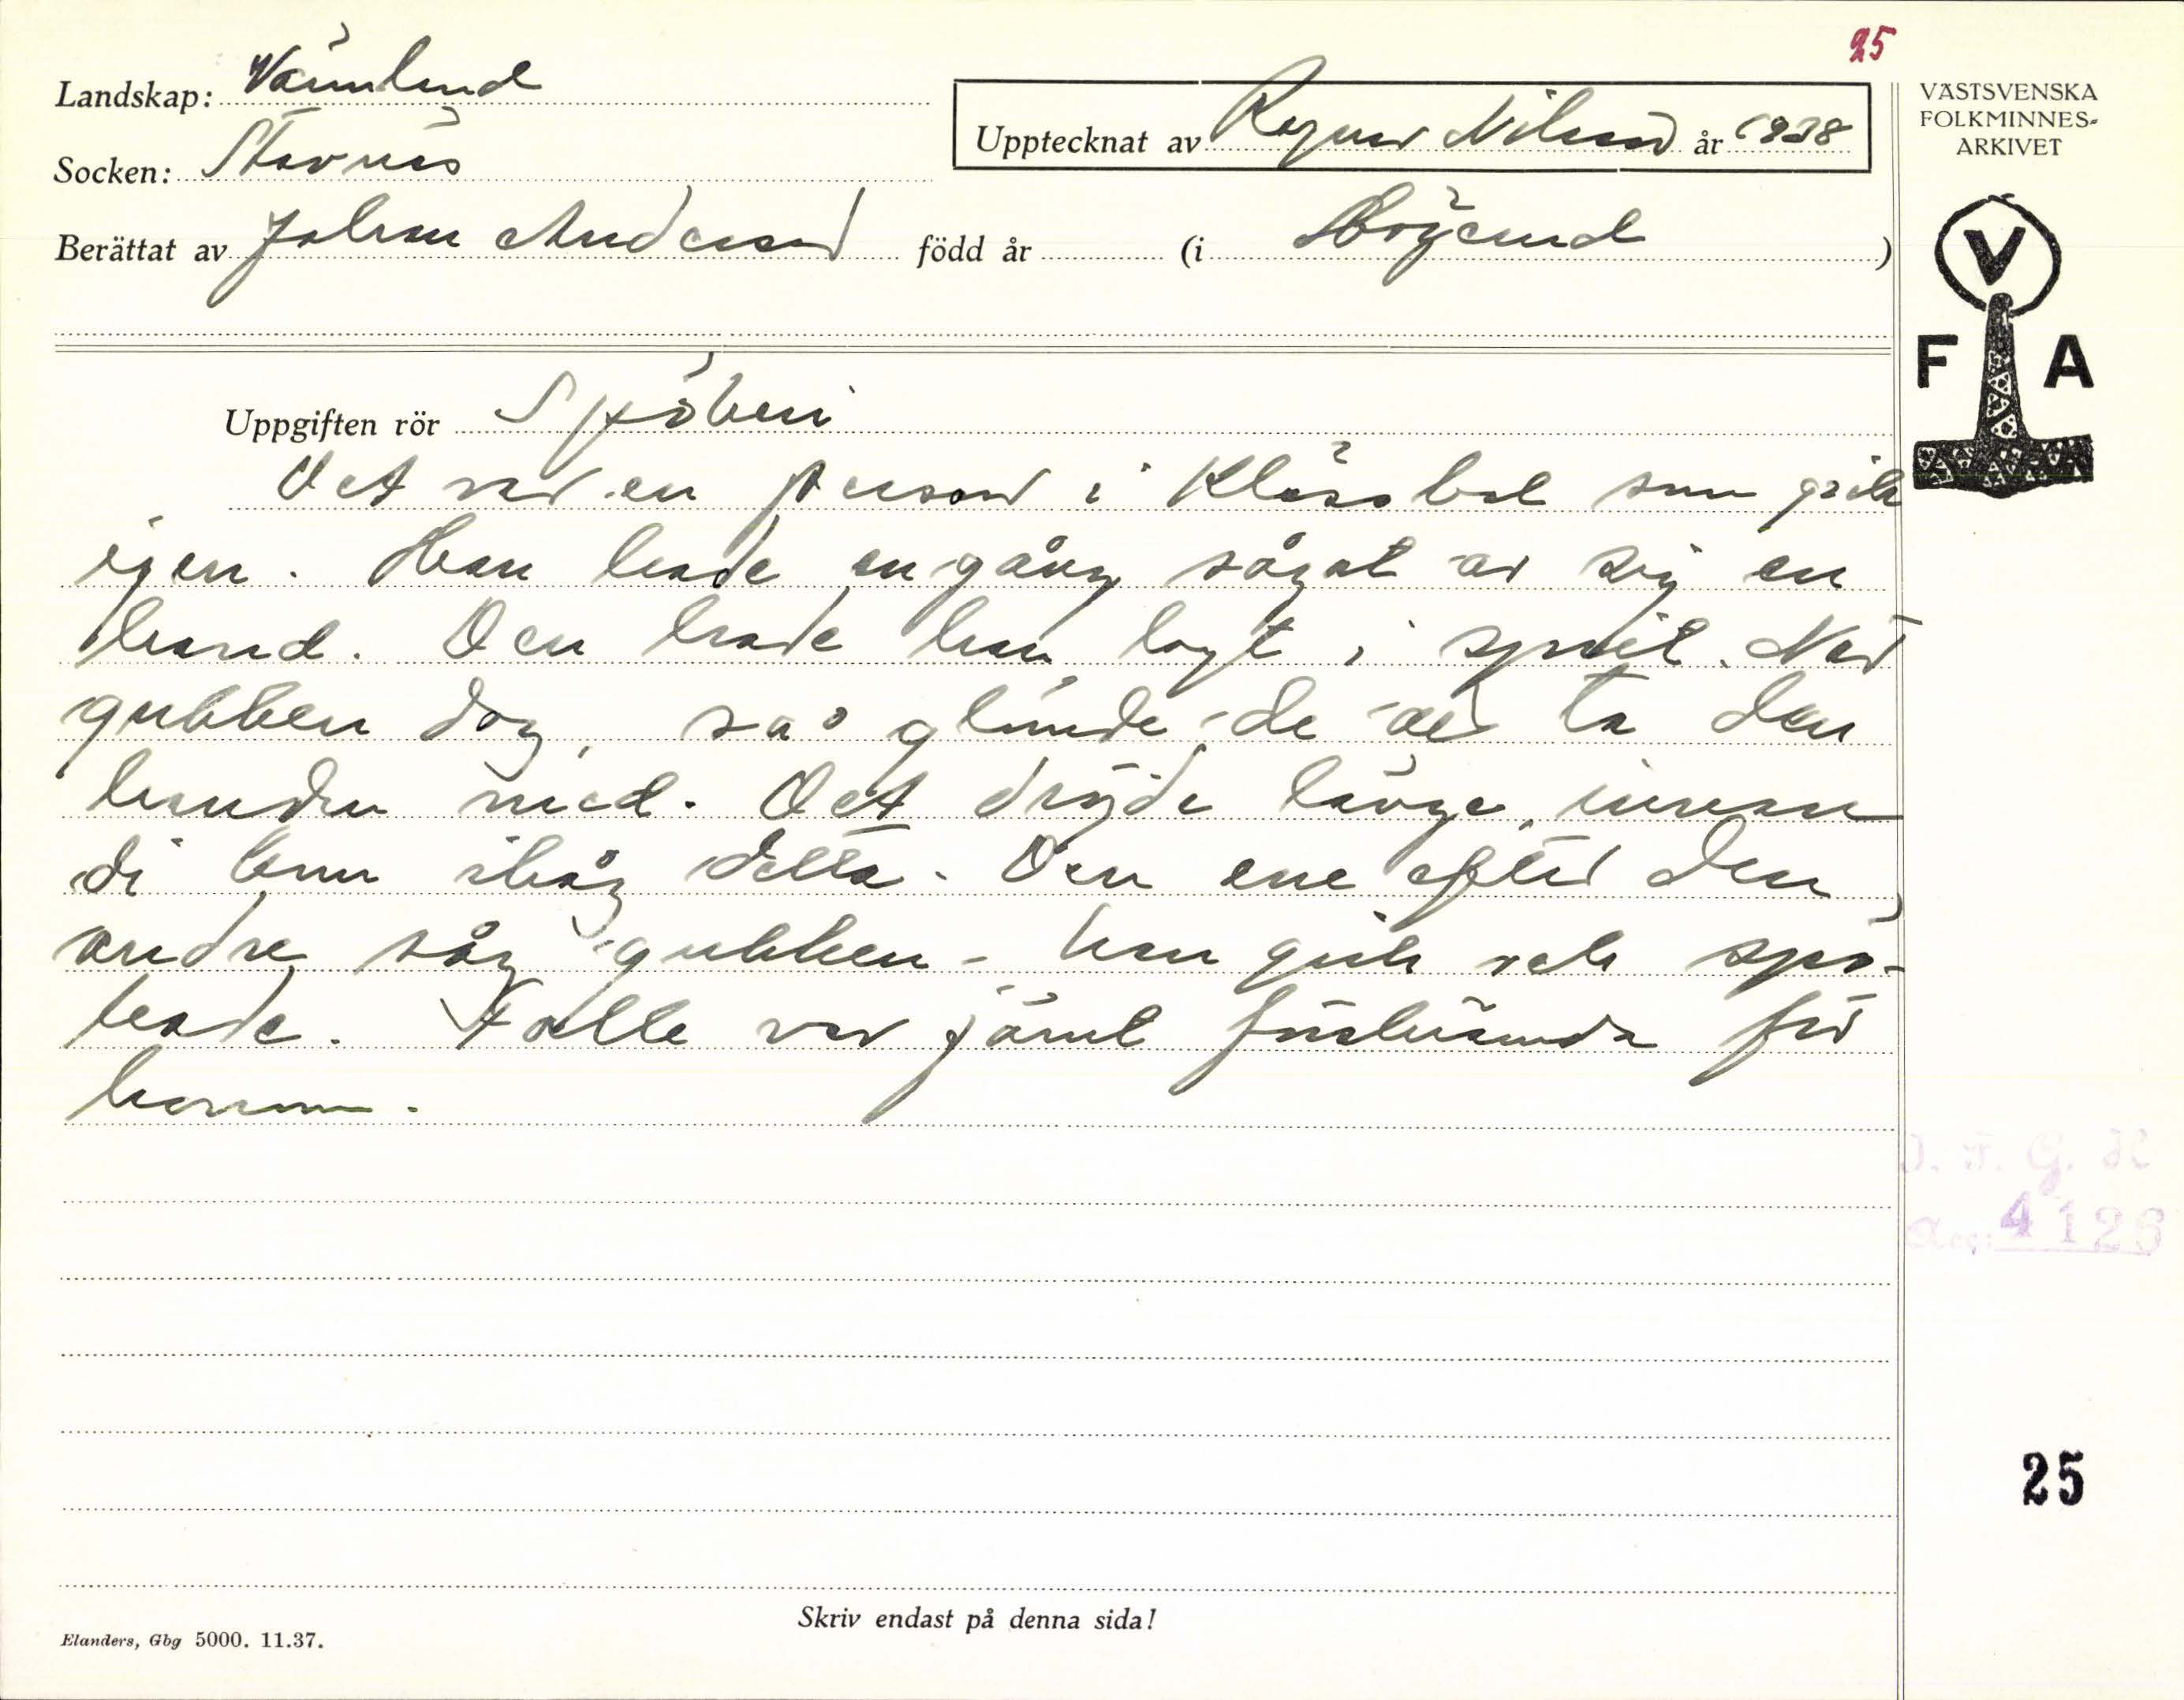 25
Landskap: Värmland
Socken: Stavnäs
Upptecknat av Ragnar Nilsson år 1938
Berättat av Johan Anderson född år (i Högerud)
VÄSTSVENSKA
FOLKMINNES-
ARKIVET
V
F A
Uppgiften rör Spöken
Det var en person i Klässbol som gick
igen. Han hade en gång sågat av sig en
hand. Den hade han lagt i sprit. När
gubben dog, så glömde de att ta den
handen med. Det dröjde länge innan
di kom ihåg detta. Den ene efter den
andre såg gubben - han gick och spö-
kade. Folk var jämt förskrämda för
honom.
D. F. G. H
Acc: 4126
25
Skriv endast på denna sida!
Elanders, Gbg 5000. 11.37.